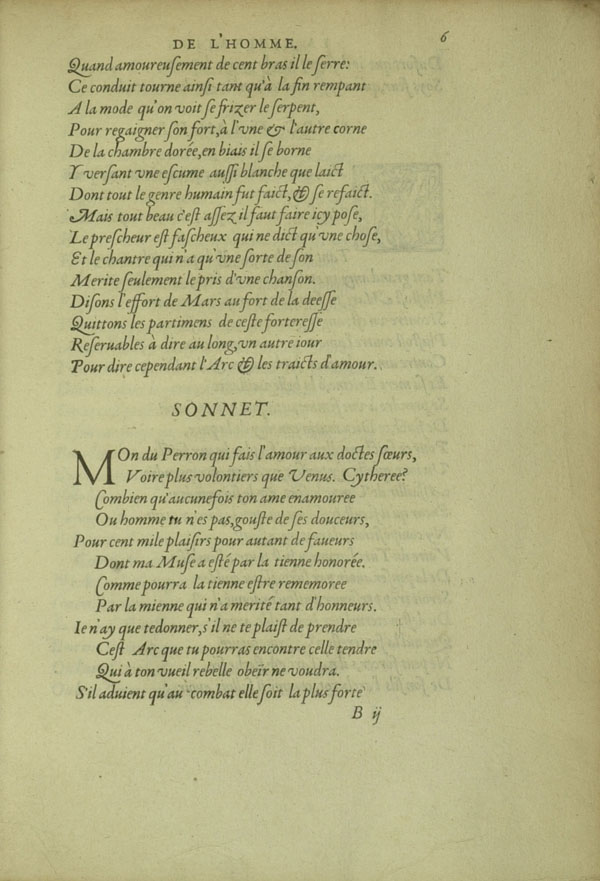 DE L'HOMME. 6
Quand amoureuſement de cent bras il le ſerre:
Ce conduit tourne ainſi tant qu'à la fin rempant
A la mode qu'on voit ſe frizer le ſerpent,
Pour regaigner ſon fort, à l'vne & l'autre corne
De la chambre dorée, en biais il ſe borne
Y verſant vne eſcume auſſi blanche que laict
Dont tout le genre humain fut faict, & ſe refaict.
Mais tout beau c'eſt aſſez il faut faire icy poſe,
Le preſcheur eſt faſcheux qui ne dict qu'vne choſe,
Et le chantre qui n'a qu'vne ſorte de ſon
Merite ſeulement le pris d'vne chanſon.
Diſons l'effort de Mars au fort de la deeſſe
Quittons les partimens de ceſte fortereſſe
Reſeruables à dire au long, vn autre iour
Pour dire cependant l'Arc & les traicts d'amour.
SONNET.
MOn du Perron qui fais l'amour aux doctes ſœurs,
Voire plus volontiers que Venus. Cytheree?
Combien qu'aucunefois ton ame enamouree
Ou homme tu n'es pas, gouſte de ſes douceurs,
Pour cent mile plaiſirs pour autant de faueurs
Dont ma Muſe a eſté par la tienne honorée.
Comme pourra la tienne eſtre rememoree
Par la mienne qui n'a merité tant d'honneurs.
Ie n'ay que tedonner, s'il ne te plaiſt de prendre
Ceſt Arc que tu pourras encontre celle tendre
Qui à ton vueil rebelle obeïr ne voudra.
S'il aduient qu'au combat elle ſoit la plus forte
B ij